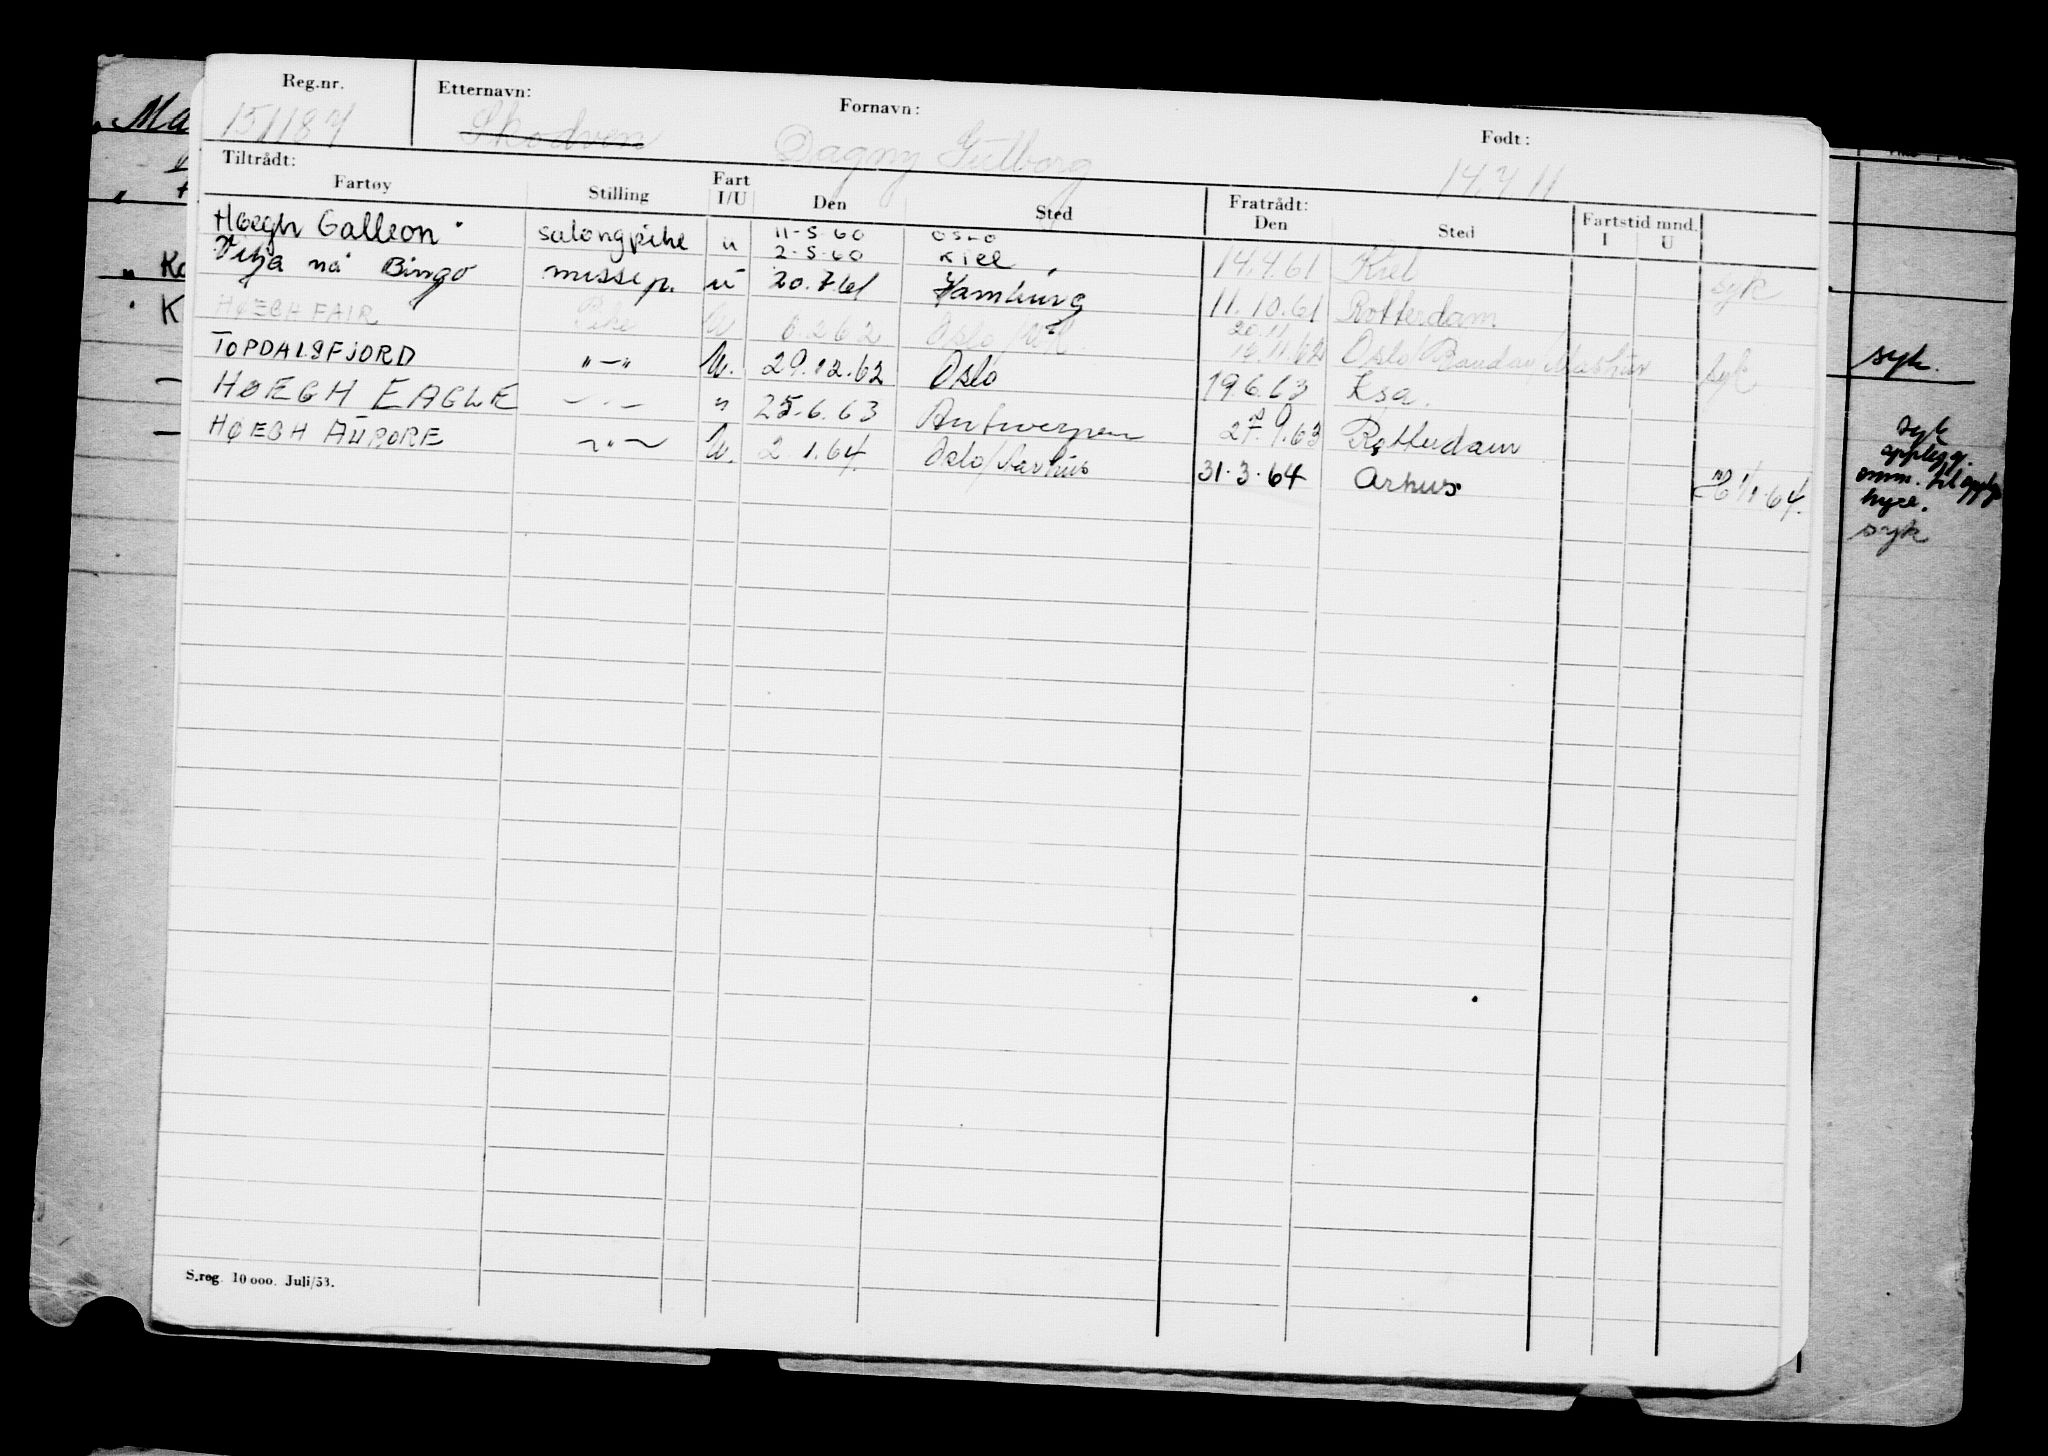 Reg.nr. Etternavn: Fornavn: Født:
151187 Skodven Dagny Gulborg 14.7.11
Tiltrådt: Fratrådt:
Fartøy Stilling Fart I/U Den Sted Den Sted Fartstid mnd. I U
Høegh Galleon salongpike u 11-5 60 Oslo
2-5-60 Kiel 14.4.61 Kiel syk
Vilja nå Bingo messep. u 20.7.61 Hamburg 11.10.61 Rotterdam
HØEGH FAIR Pike U 6.2.62 Oslo 20.11 62 Oslo syk
TOPDALSFJORD "-" U. 29.12.62 Oslo 19.6.63 Ksa.
HØEGH EAGLE - " - " 25.6.63 Antwerpen 27.9.63 Rotterdam
HØEGH AURORE - " - U. 2.1.64 Oslo/Aarhus 31.3.64 Arhus
Ma
Ko
K
syk.
syk
opplegg.
hyre.
syk
S.reg. 10 000. Juli/53.